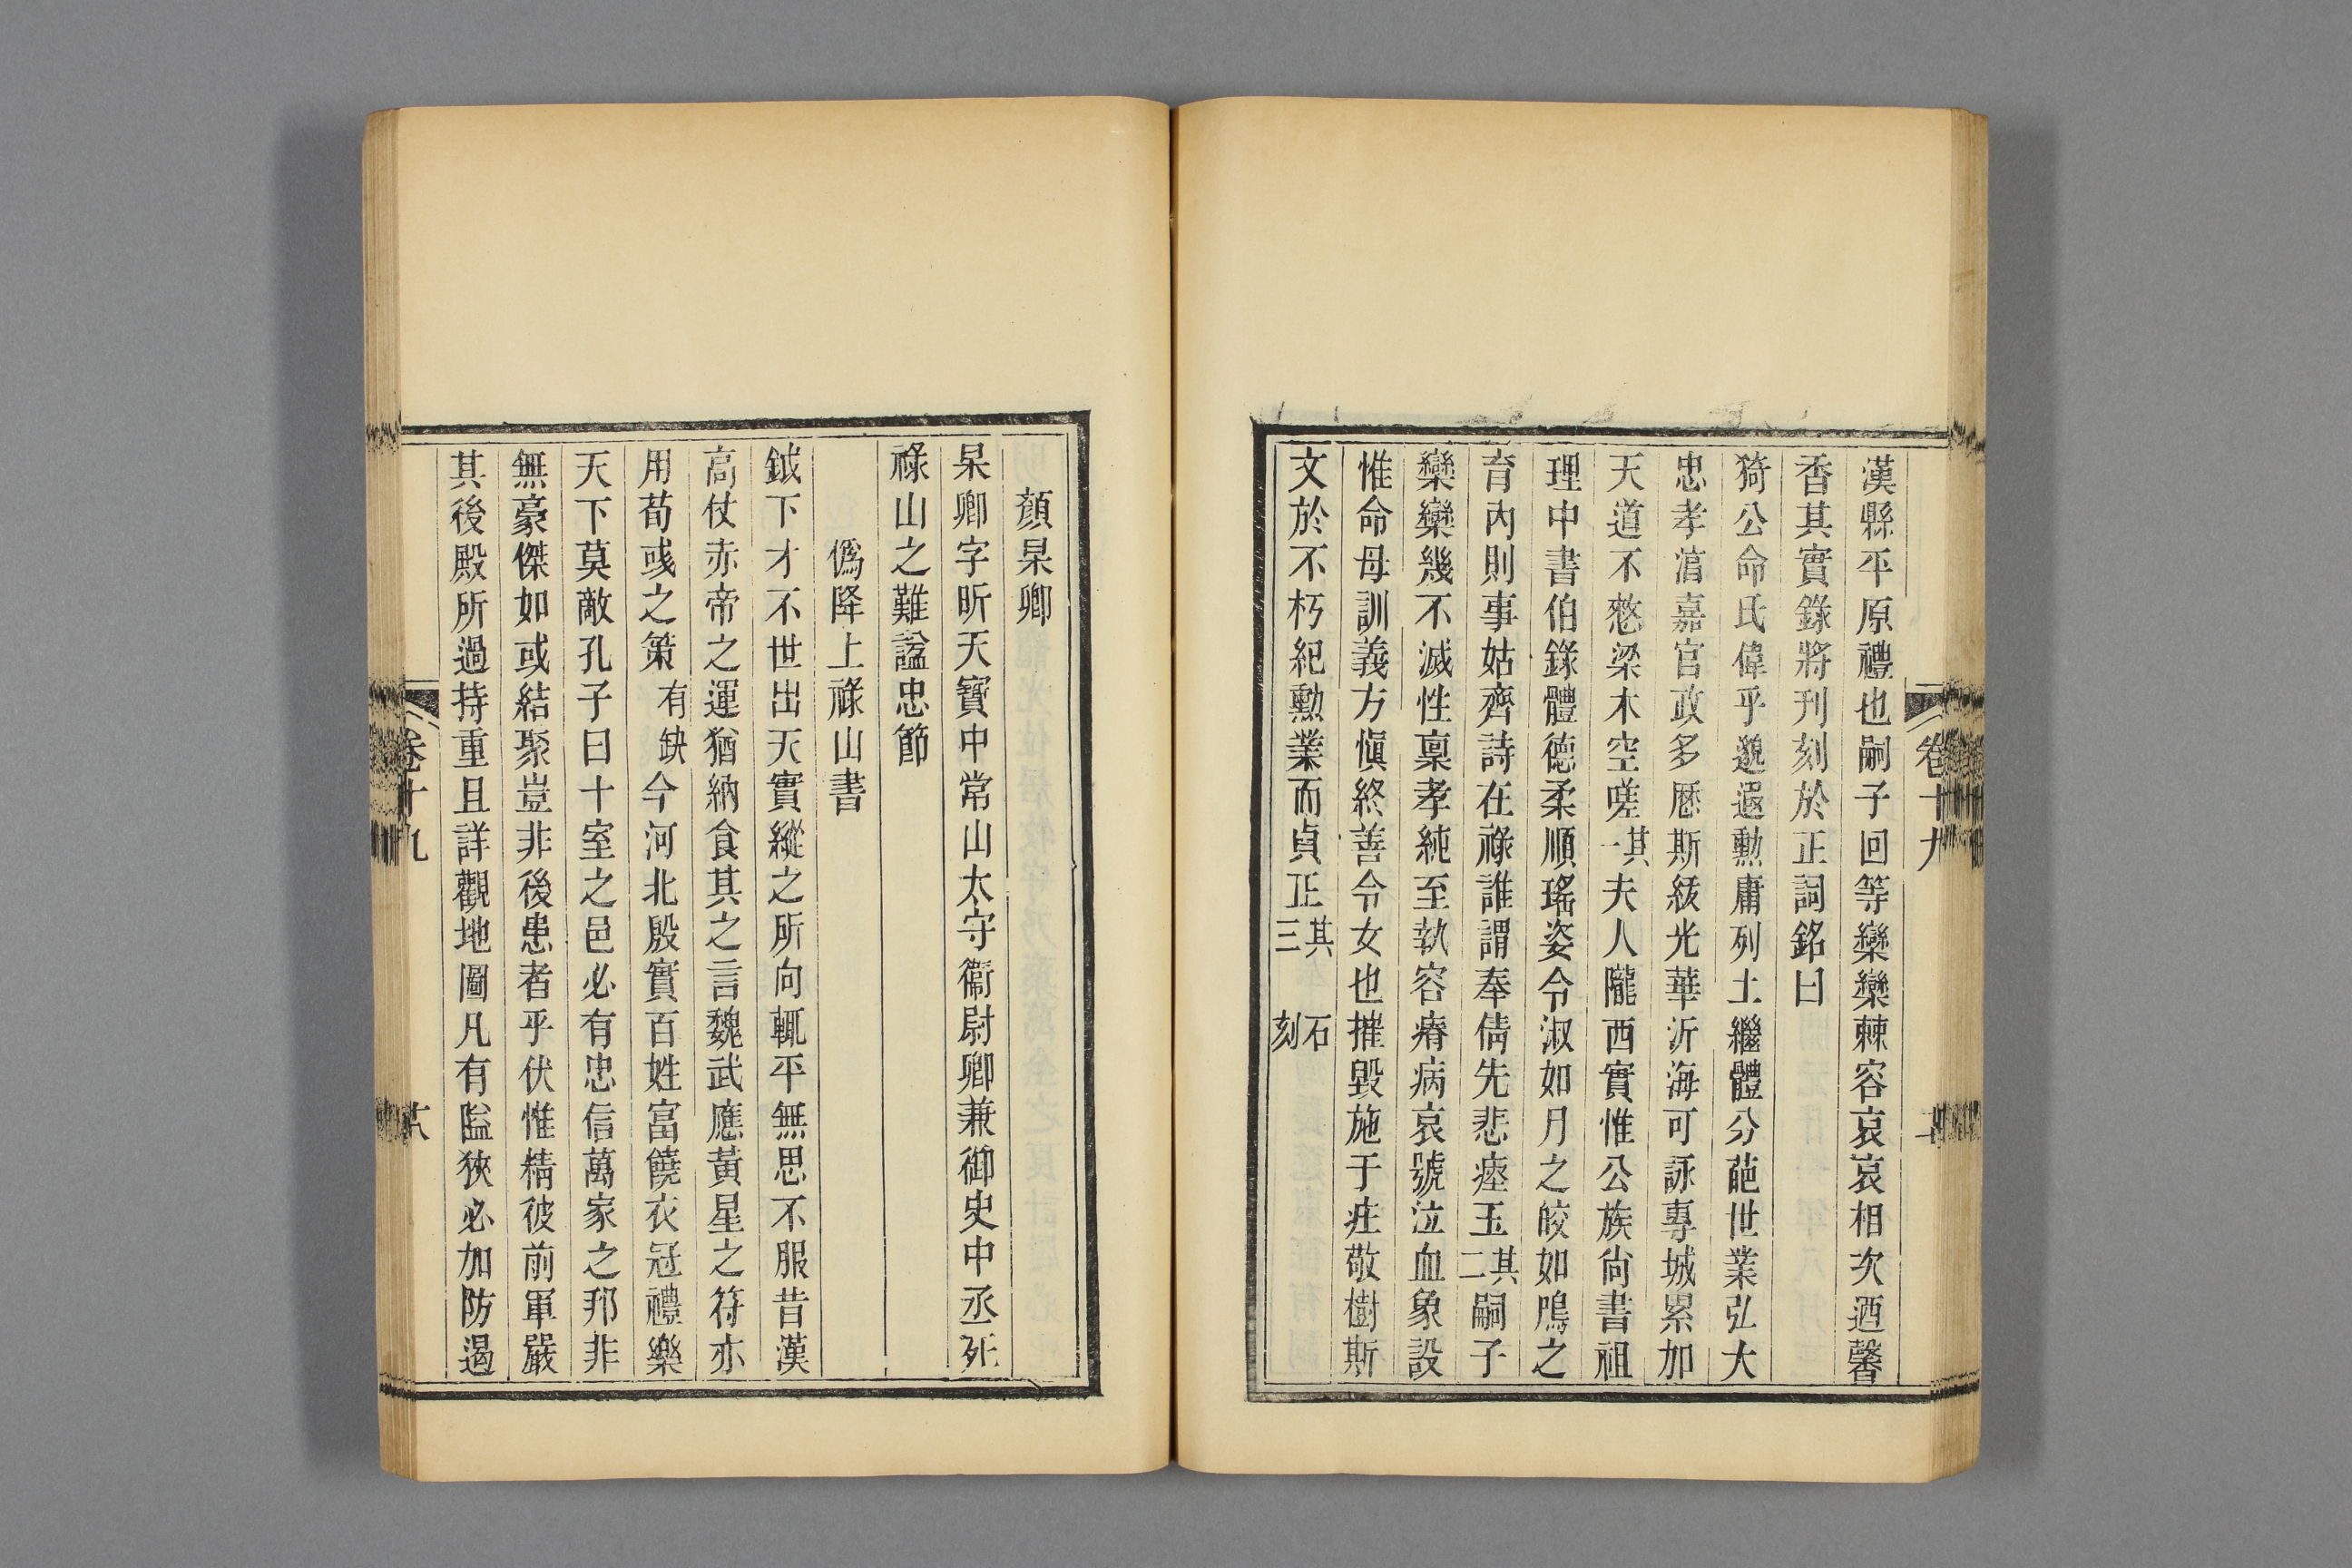 漢縣平原禮也嗣子回等欒欒棘容哀哀相次迺馨
香其實錄將刊刻於正詞銘曰
猗公命氏偉乎邈遐勳庸列土繼體分葩世業弘大
忠孝涫嘉官政多歷斯綏光華沂海可詠專城累加
天道不憖梁木空嗟其一夫人隴西實惟公族尙書祖
理中書伯錄體德柔順瑤姿令淑如月之皎如鳲之
育內則事姑齊詩在祿誰謂奉倩先悲瘞玉其二嗣子
欒欒幾不滅性稟孝純至執容瘠病哀號泣血象設
惟命母訓義方愼終善令女也摧毀施于莊敬樹斯
文於不朽紀勳業而貞正其三 石刻
卷十九
顏杲卿
杲卿字昕天寶中常山太守衞尉卿兼御史中丞死
祿山之難諡忠節
僞降上祿山書
鉞下才不世出天實縱之所向輒平無思不服昔漢
高仗赤帝之運猶納食其之言魏武應黃星之符亦
用荀彧之策有缺今河北殷實百姓富饒衣冠禮樂
天下莫敵孔子曰十室之邑必有忠信萬家之邦非
無豪傑如或結聚豈非後患者乎伏惟精彼前軍嚴
其後殿所過持重且詳觀地圖凡有隘狹必加防遏
卷十九